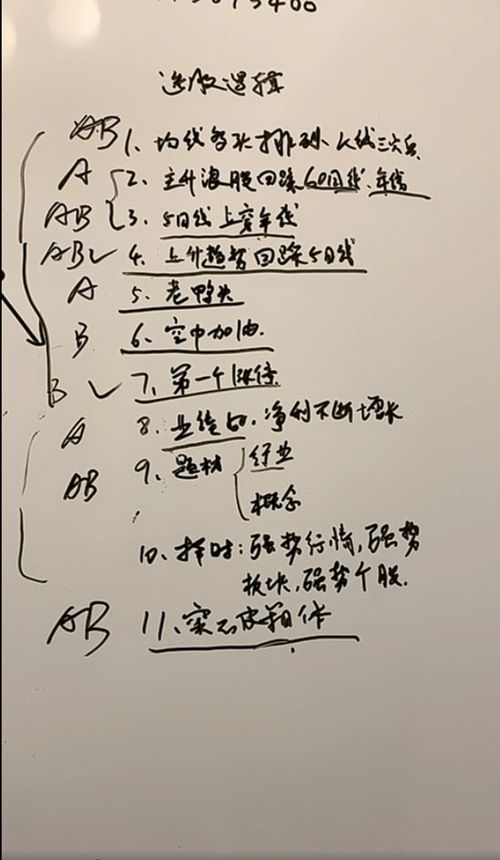 选股逻辑
AB 1、均线多头排列、K线三六兵
A 2、主升浪股回踩60日线、年线
AB 3、5日线上穿年线
AB✓ 4、上升趋势回踩5日线
A 5、老鸭头
B 6、空中加油.
B ✓ 7、第一个涨停
A 8、业绩, 净利不断增长
AB 9、题材 { 行业
概念
10、择时:强势行情,强势
板块,强势个股.
AB 11、